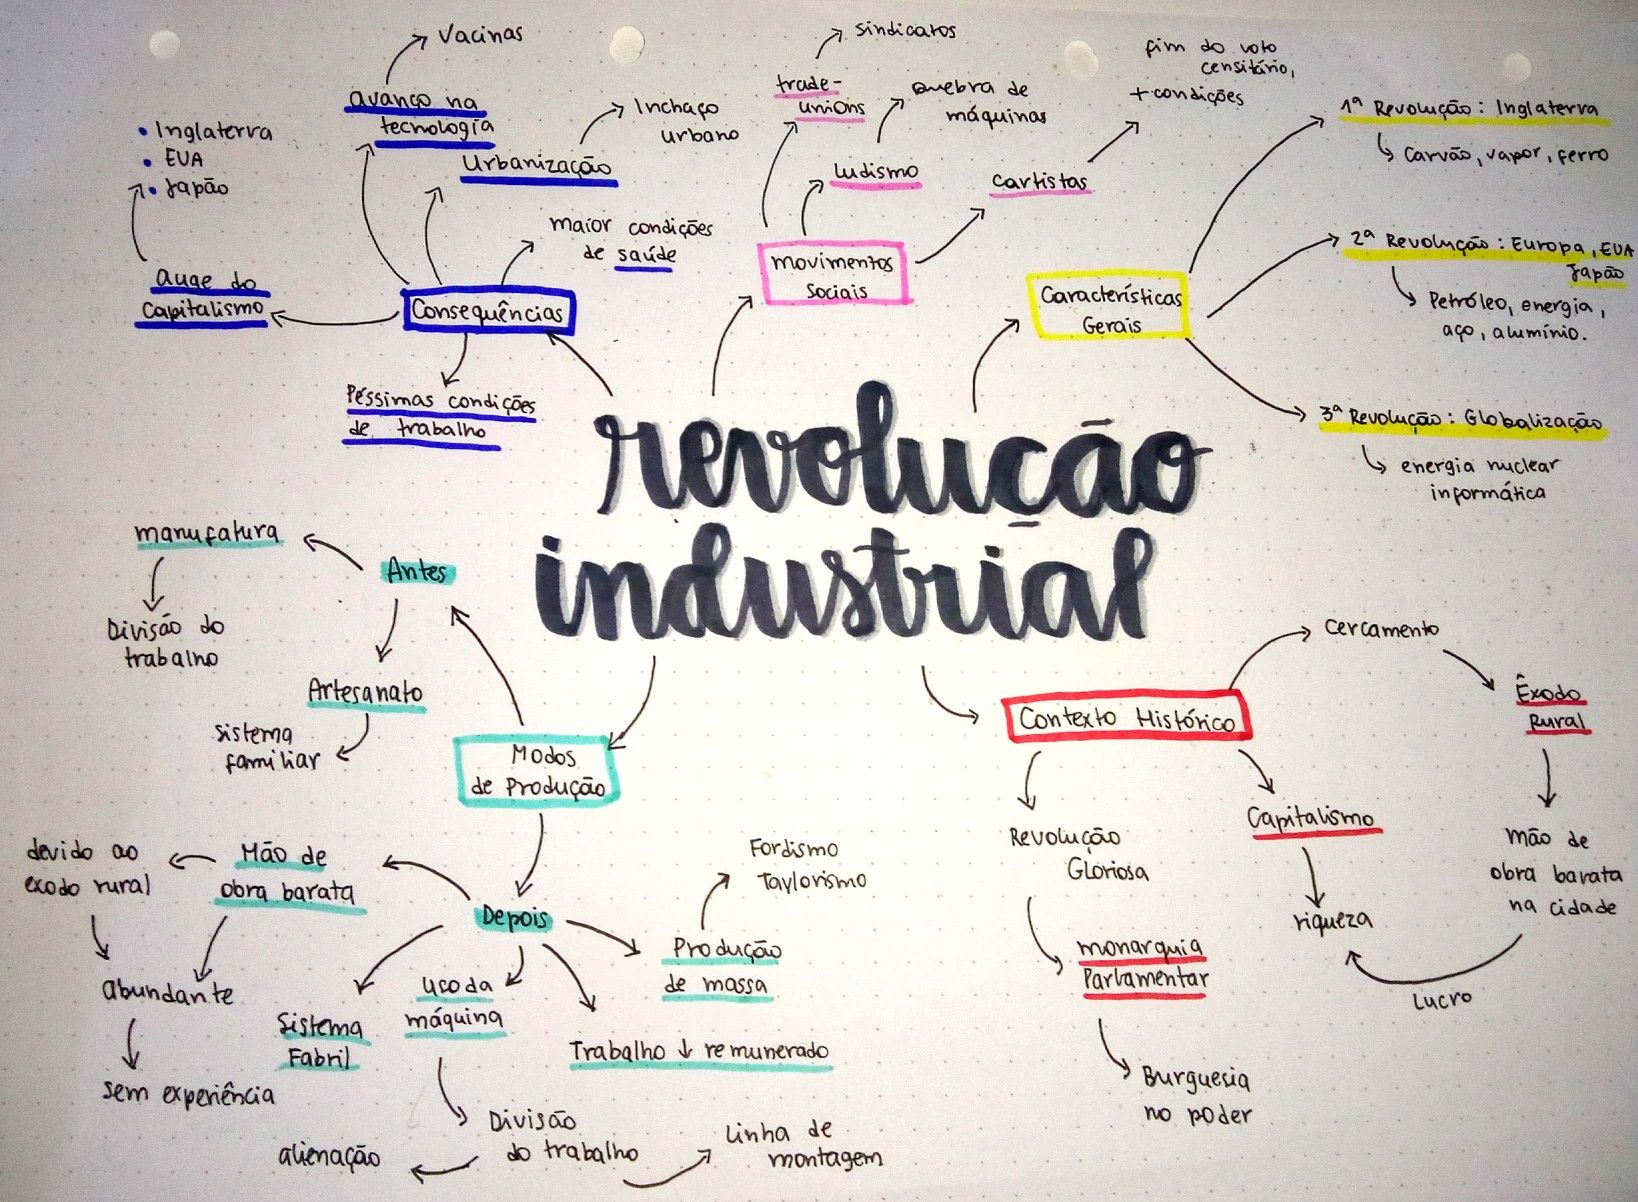 revolução
industrial
Consequências
avanço na
tecnologia
Vacinas
Urbanização
Inchaço
urbano
maior condições
de saúde
auge do
Capitalismo
• Inglaterra
• EUA
• Japão
Péssimas condições
de trabalho
movimentos
Sociais
trade-
unions
sindicatos
ludismo
Quebra de
máquinas
cartistas
fim do voto
censitário,
+ condições
Características
Gerais
1ª Revolução: Inglaterra
Carvão, vapor, ferro
2ª Revolução: Europa, EUA
Japão
Petróleo, energia,
aço, alumínio.
3ª Revolução: Globalização
energia nuclear
informática
Modos
de Produção
Antes
manufatura
Divisão do
trabalho
Artesanato
sistema
familiar
Depois
Mão de
obra barata
devido ao
exodo rural
abundante
sem experiência
Sistema
Fabril
Uso da
máquina
Divisão
do trabalho
alienação
Linha de
montagem
Trabalho ↓ remunerado
Produção
de massa
Fordismo
Taylorismo
Contexto Histórico
cercamento
Êxodo
Rural
mão de
obra barata
na cidade
Lucro
Capitalismo
riqueza
Revolução
Gloriosa
monarquia
Parlamentar
Burguesia
no poder